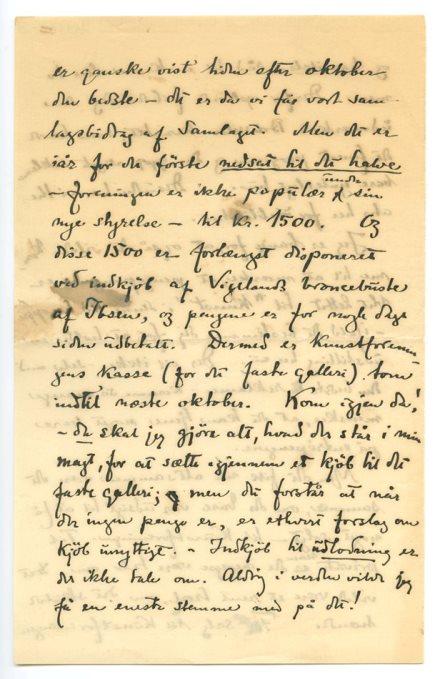 er ganske vist tiden efter oktober
den bedste – det er da vi får vort sam-
lagsbidrag af Samlaget. Men det er
iår for det første nedsat til det halve
– foreningen er ikke populær under sin
nye styrelse – til kr. 1500. Og
disse 1500 er forlængst disponeret
ved indkjøb af Vigelands broncebüste
af Ibsen, og pengene er for nogle dage
siden udbetalt. Dermed er Kunstforenin-
gens kasse (for det faste galleri) tom
indtil næste oktober. Kom igjen da!
– da skal jeg gjöre alt, hvad der står i min
magt, for at sætte igjennem et kjöb til det
faste galleri; men det forstår at når
der ingen penge er, er ethvert forslag om
kjöb unyttigt. – Indkjöb til udlodning er
der ikke tale om. Aldrig i verden vilde jeg
få en eneste stemme med på det!